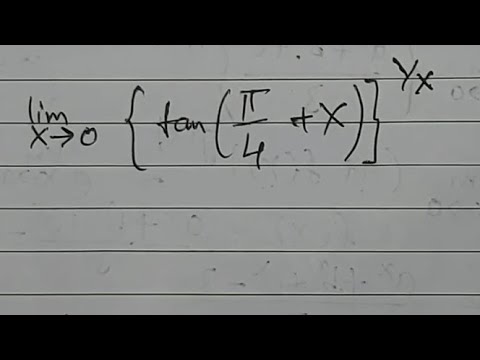 lim x→0 { tan (π/4 + x) }^1/x